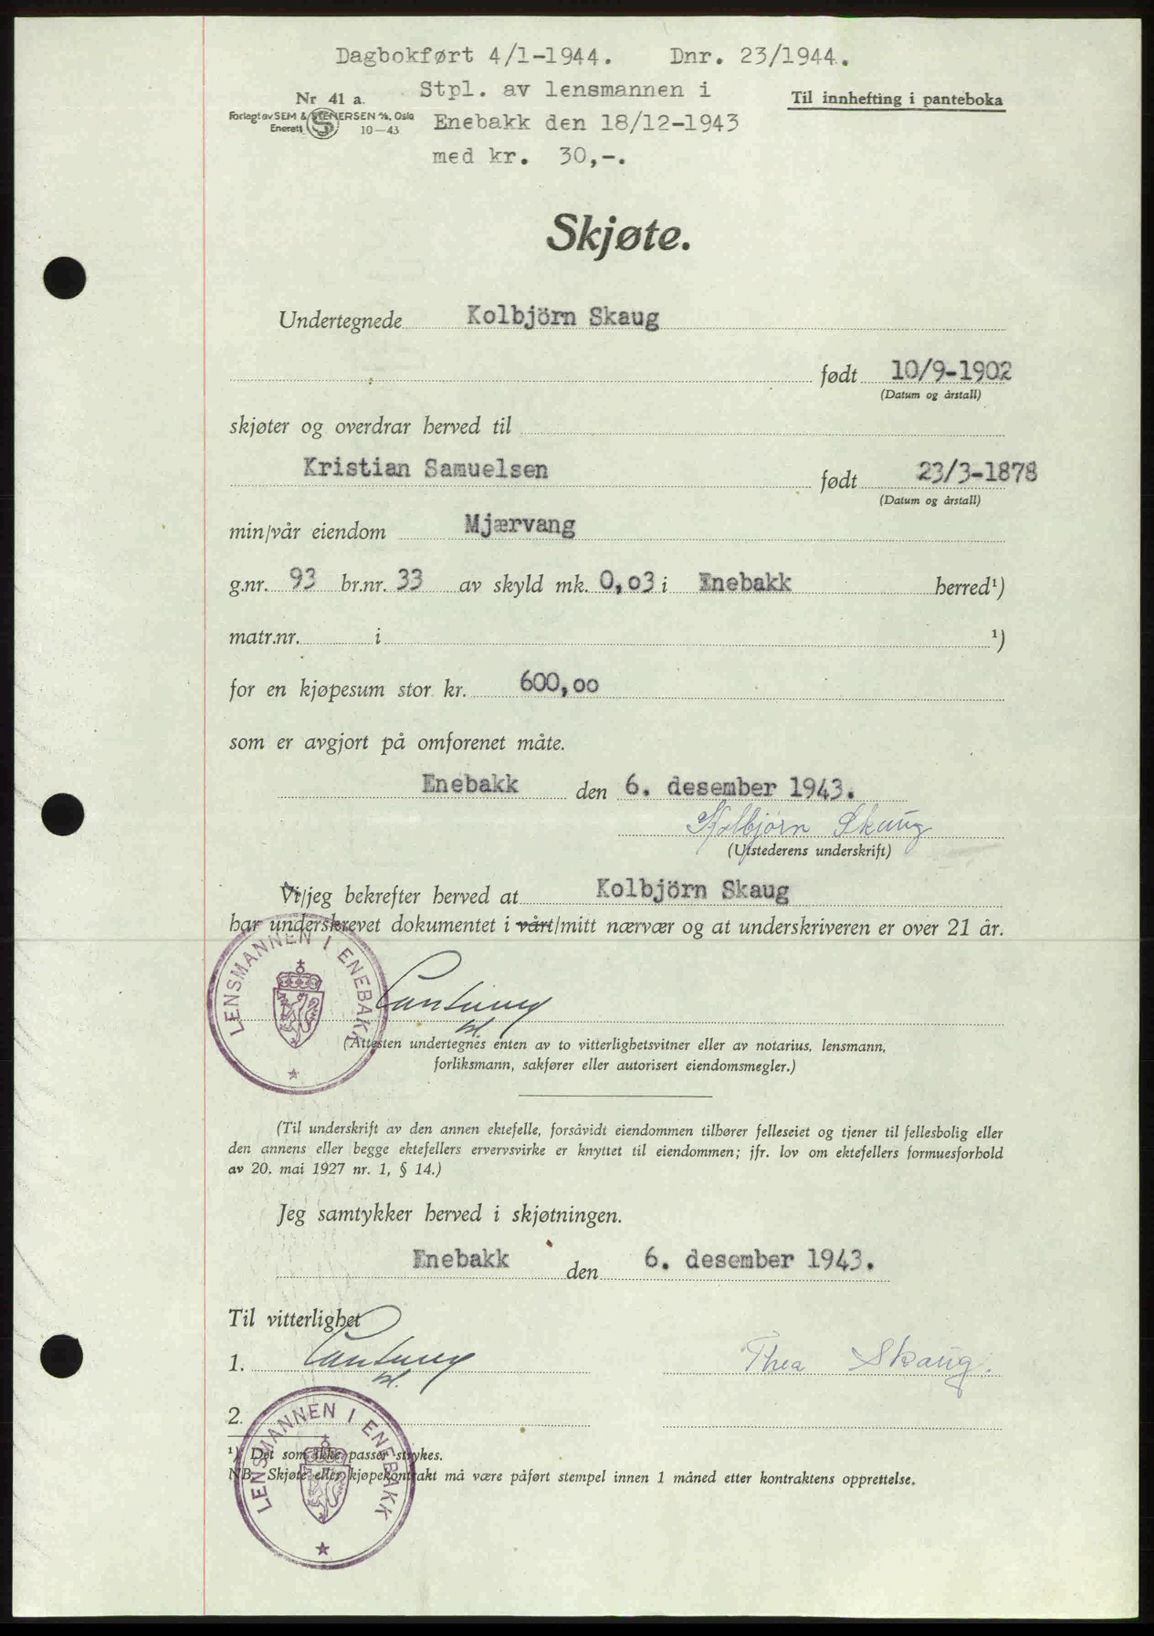 Dagbokført 4/1-1944. Dnr. 23/1944.
Nr 41 a.
Stpl. av lensmannen i
Til innhefting i panteboka
Forlagt av SEM & STENERSEN A/S, Oslo
Enerett 10—43
Enebakk den 18/12-1943
med kr. 30,-.
Skjøte.
Undertegnede Kolbjörn Skaug
født 10/9-1902
(Datum og årstall)
skjøter og overdrar herved til
Kristian Samuelsen født 23/3-1878
(Datum og årstall)
min/vår eiendom Mjærvang
g.nr. 93 br.nr. 33 av skyld mk. 0,03 i Enebakk herred¹)
matr.nr. i ¹)
for en kjøpesum stor kr. 600,00
som er avgjort på omforenet måte.
Enebakk den 6. desember 1943.
Kolbjørn Skaug
(Utstederens underskrift)
Vi/jeg bekrefter herved at Kolbjörn Skaug
har underskrevet dokumentet i vårt/mitt nærvær og at underskriveren er over 21 år.
LENSMANNEN I ENEBAKK
(Attesten undertegnes enten av to vitterlighetsvitner eller av notarius, lensmann,
forliksmann, sakfører eller autorisert eiendomsmegler.)
(Til underskrift av den annen ektefelle, forsåvidt eiendommen tilhører felleseiet og tjener til fellesbolig eller
den annens eller begge ektefellers ervervsvirke er knyttet til eiendommen; jfr. lov om ektefellers formuesforhold
av 20. mai 1927 nr. 1, § 14.)
Jeg samtykker herved i skjøtningen.
Enebakk den 6. desember 1943.
Til vitterlighet
1. Thea Skaug.
2.
LENSMANNEN I ENEBAKK
¹) Det som ikke passer strykes.
NB. Skjøte eller kjøpekontrakt må være påført stempel innen 1 måned etter kontraktens opprettelse.